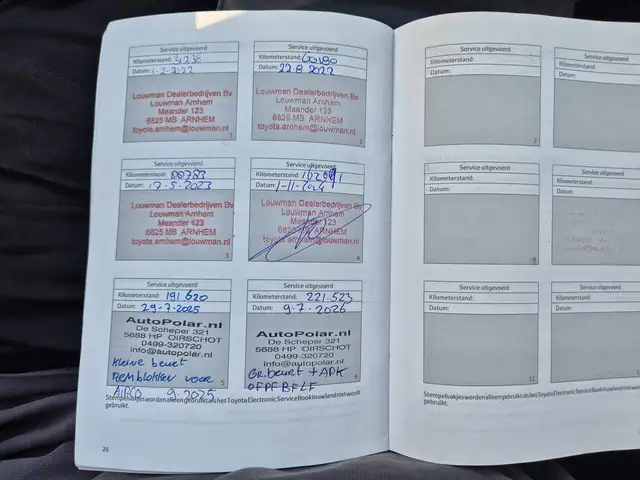 Service uitgevoerd
Kilometerstand:
Datum: 1-2-2022
Louwman Dealerbedrijven Bv
Louwman Arnhem
Meander 123
6825 MB ARNHEM
toyota.arnhem@louwman.nl
1
Service uitgevoerd
Kilometerstand: 60180
Datum: 22.8.2022
Louwman Dealerbedrijven Bv
Louwman Arnhem
Meander 123
6825 MB ARNHEM
toyota.arnhem@louwman.nl
2
Service uitgevoerd
Kilometerstand: 88783
Datum: 17-5-2023
Louwman Dealerbedrijven Bv
Louwman Arnhem
Meander 123
6825 MB ARNHEM
toyota.arnhem@louwman.nl
3
Service uitgevoerd
Kilometerstand:
Datum: 1-11-2024
Louwman Dealerbedrijven Bv
Louwman Arnhem
Meander 123
6825 MB ARNHEM
toyota.arnhem@louwman.nl
4
Service uitgevoerd
Kilometerstand: 191 620
Datum: 29-7-2025
AutoPolar.nl
De Scheper 321
5688 HP OIRSCHOT
0499-320720
info@autopolar.nl
Kleine beurt
Remblokken voor
AIRCO 9.2025
5
Service uitgevoerd
Kilometerstand: 221.523
Datum: 9-7-2026
AutoPolar.nl
De Scheper 321
5688 HP OIRSCHOT
0499-320720
info@autopolar.nl
Gr. beurt + APK
6
Stempelvakjes worden alleen gebruikt als het Toyota Electronic Service Book in uw land niet wordt
gebruikt.
26
Service uitgevoerd
Kilometerstand:
Datum:
7
Service uitgevoerd
Kilometerstand:
Datum:
Service uitgevoerd
Kilometerstand:
Datum:
9
Service uitgevoerd
Kilometerstand:
Datum:
Service uitgevoerd
Kilometerstand:
Datum:
11
Service uitgevoerd
Kilometerstand:
Datum:
Stempelvakjes worden alleen gebruikt als het Toyota Electronic Service Book in uw land niet wordt
gebruikt.